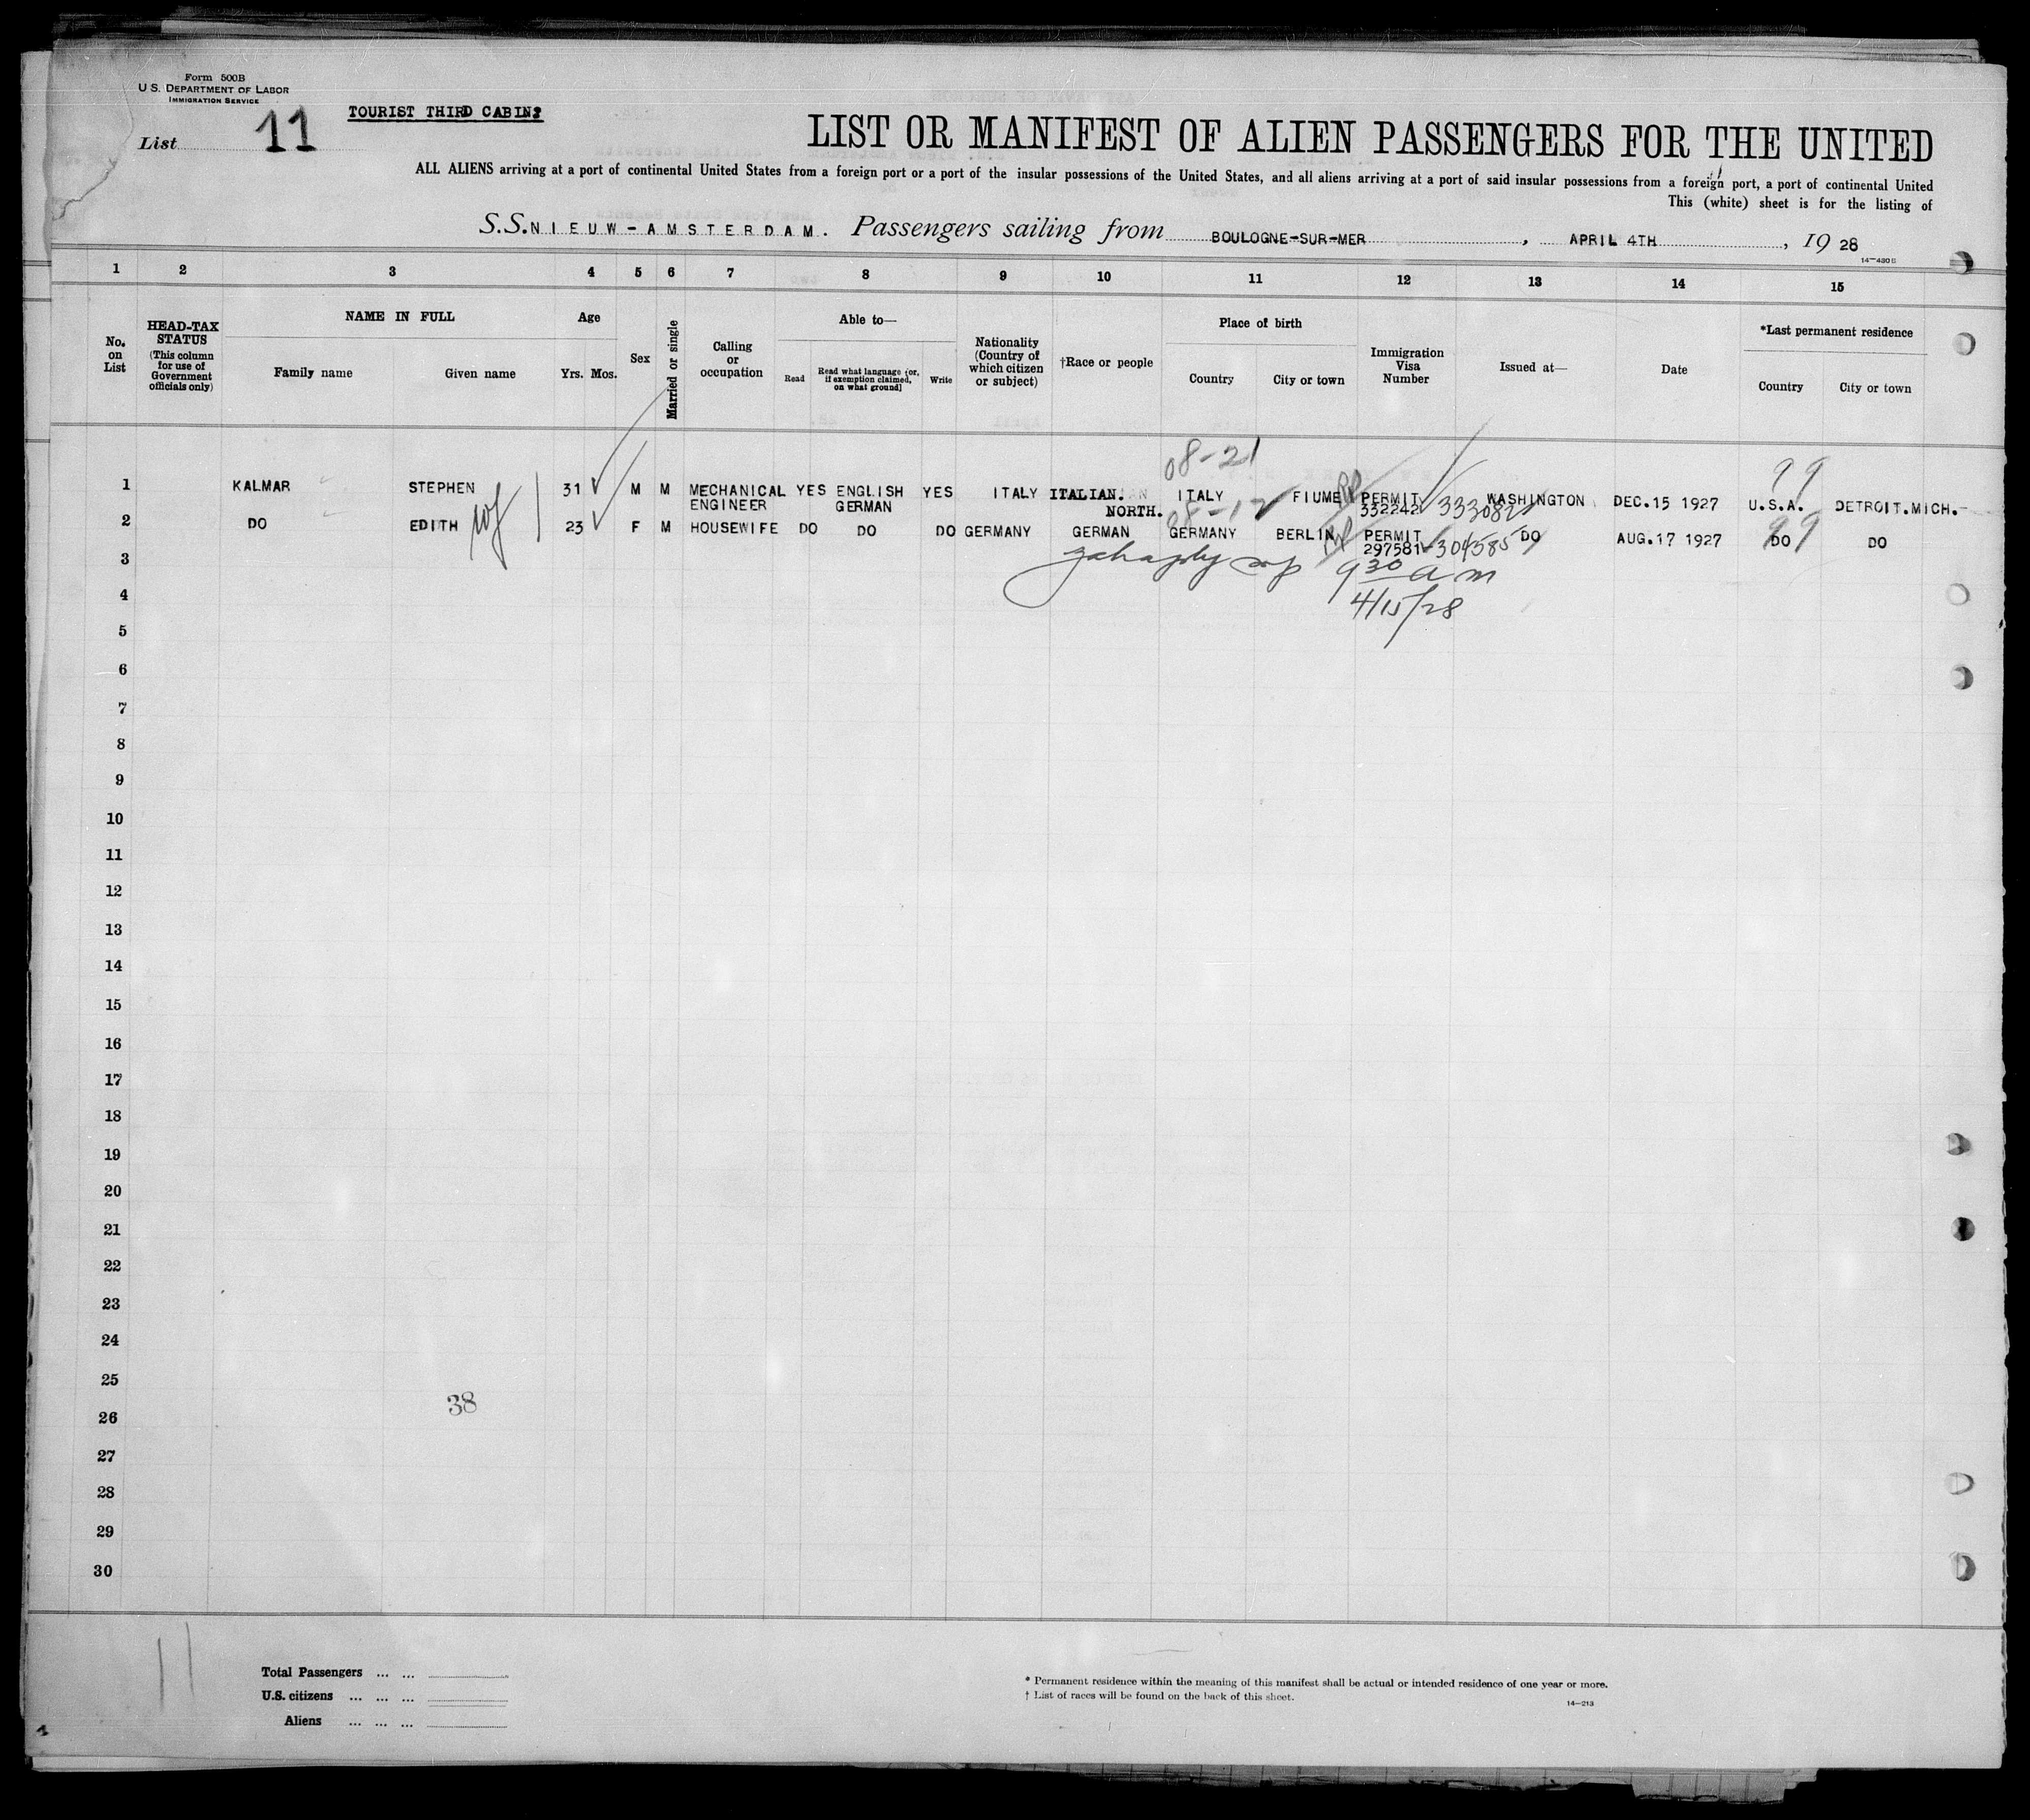 Form 500B
U. S. DEPARTMENT OF LABOR
IMMIGRATION SERVICE
List 11
TOURIST THIRD CABIN
LIST OR MANIFEST OF ALIEN PASSENGERS FOR THE UNITED
ALL ALIENS arriving at a port of continental United States from a foreign port or a port of the insular possessions of the United States, and all aliens arriving at a port of said insular possessions from a foreign port, a port of continental United
This (white) sheet is for the listing of
S.S. NIEUW-AMSTERDAM. Passengers sailing from BOULOGNE-SUR-MER, APRIL 4TH, 1928
14-430 B
1 2 3 4 5 6 7 8 9 10 11 12 13 14 15
No. on List
HEAD-TAX STATUS (This column for use of Government officials only)
NAME IN FULL
Family name Given name
Age
Yrs. Mos.
Sex
Married or single
Calling or occupation
Able to—
Read Read what language [or, if exemption claimed, on what ground] Write
Nationality (Country of which citizen or subject)
†Race or people
Place of birth
Country City or town
Immigration Visa Number
Issued at—
Date
*Last permanent residence
Country City or town
08-21 99
1 KALMAR STEPHEN 31 M M MECHANICAL ENGINEER YES ENGLISH GERMAN YES ITALY ITALIAN. NORTH. ITALY FIUME PERMIT 332242 333082 WASHINGTON DEC.15 1927 U.S.A. DETROIT.MICH.
08-12 99
2 DO EDITH wf 23 F M HOUSEWIFE DO DO DO GERMANY GERMAN GERMANY BERLIN PERMIT 297581 304585 DO AUG.17 1927 DO DO
3
9 30 am
4
4/15/28
5
6
7
8
9
10
11
12
13
14
15
16
17
18
19
20
21
22
23
24
25
38
26
27
28
29
30
11
Total Passengers ... ...
U.S. citizens ... ... ...
Aliens ... ... ...
* Permanent residence within the meaning of this manifest shall be actual or intended residence of one year or more.
† List of races will be found on the back of this sheet.
14-213